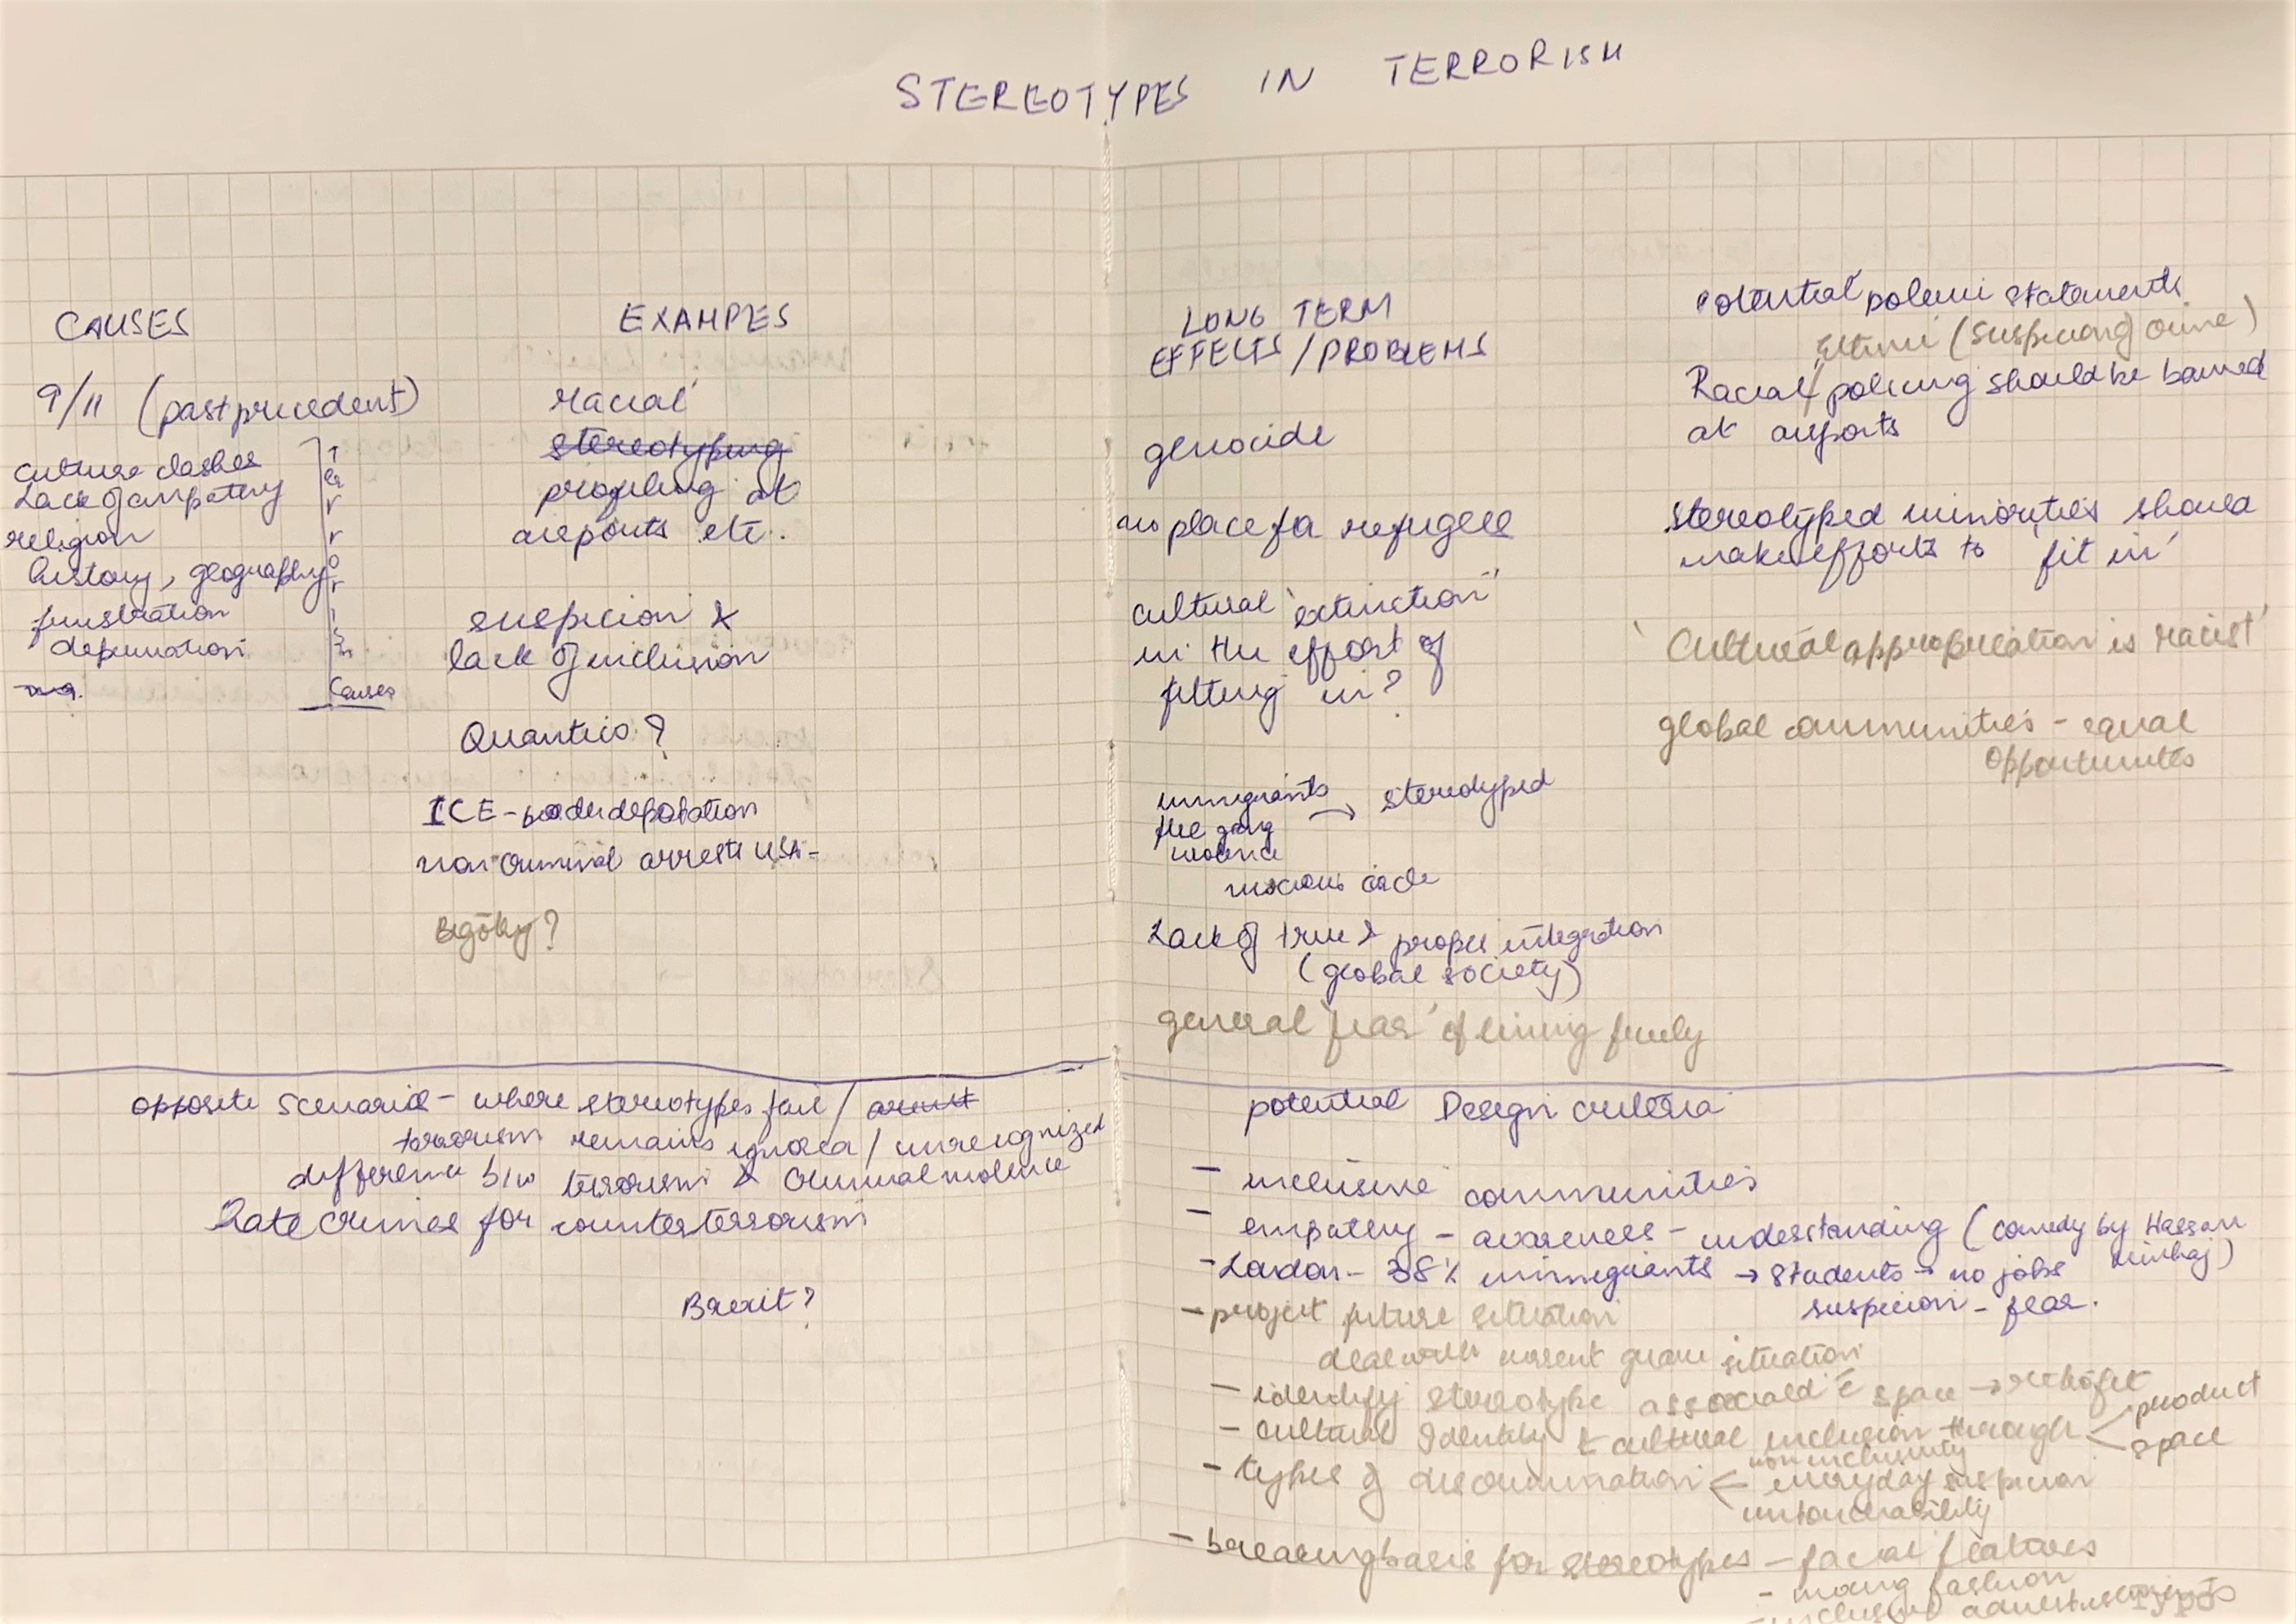 STEREOTYPES IN TERRORISM
CAUSES
9/11 (past precedent)
culture clashes
Lack of empathy
religion
history, geography
frustration
deprivation
Terrorism
Causes
EXAMPES
racial
stereotyping
profiling at
airports etc.
suspicion &
lack of inclusion
Quantico?
ICE - border deportation
non criminal arrests USA -
Bigotry?
LONG TERM
EFFECTS / PROBLEMS
genocide
no place for refugees
cultural 'extinction'
in the effort of
fitting in?
immigrants
flee gang
violence
→ stereotyped
viscious circle
Lack of true & proper integration
(global society)
general 'fear' of living freely
Potential polemic statements
Ethnic (suspicion) crime)
Racial / policing should be banned
at airports
Stereotyped minorities should
make efforts to 'fit in'
'Cultural appropriation is racist'
global communities - equal
opportunities
opposite scenarios - where stereotypes fail /
terrorism remains ignored / unrecognized
difference b/w terrorism & criminal violence
Hate crimes for counterterrorism
Brexit?
potential Design criteria
- inclusive communities
- empathy - awareness - understanding (comedy by Hassan
minhaj)
- London - 38% immigrants → students → no jobs
suspicion - fear.
- project future situation
deal with current situation
- identify stereotype associated c̄ space → retrofit
- cultural Identity & cultural inclusion through < product
space
- types of discrimination < non inclusivity
everyday suspicion
untouchability
- breaking basis for stereotypes - facial features
- mixing fashion
- inclusive advertisements